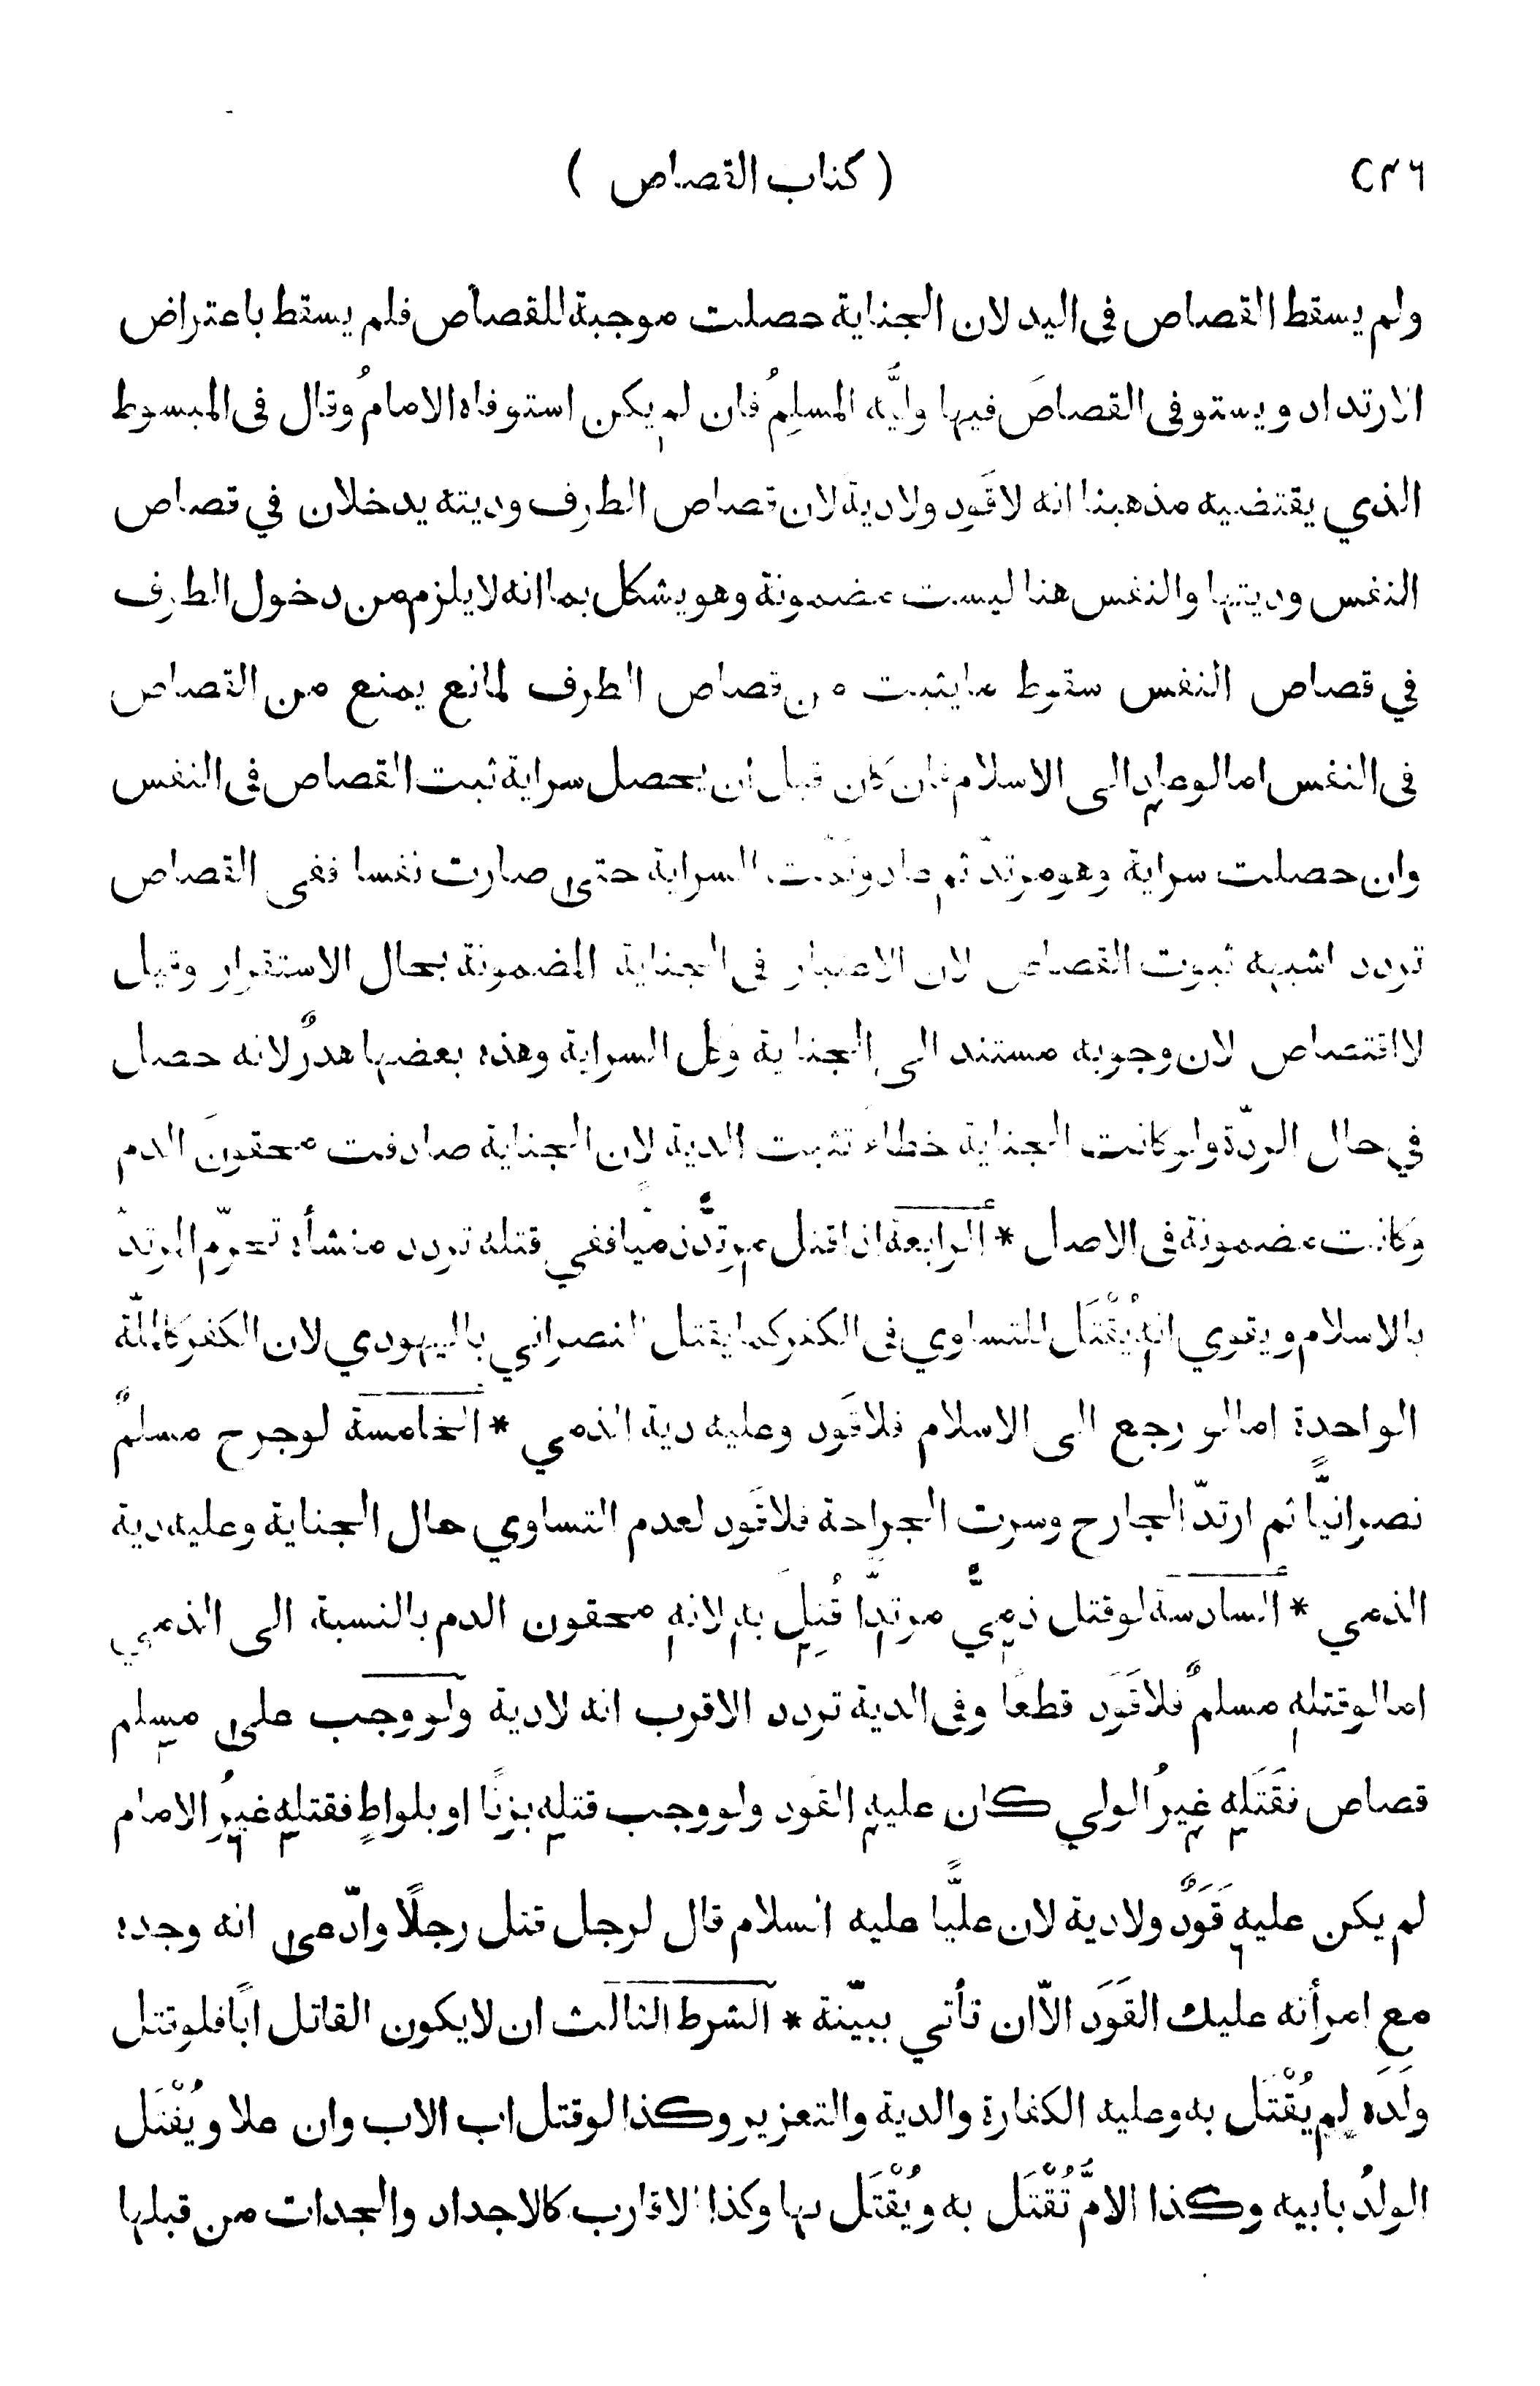 ٤٣٦
( كتاب القصاص )
ولم يسقط القصاص فى اليد لان الجناية حصلت موجبة للقصاص فلم يسقط باعتراض
الارتداد ويستوفى القصاصَ فيها وليُّه المسلِمُ فان لم يكن استوفاه الامامُ وقال فى المبسوط
الذي يقتضيه مذهبنا انه لا قَود ولا دية لان قصاص الطرف وديته يدخلان في قصاص
النفس وديتها والنفس هنا ليست مضمونة وهو يشكل بما انه لا يلزم من دخول الطرف
في قصاص النفس سقوط ما يثبت من قصاص الطرف لمانع يمنع من القصاص
فى النفس اما لو عاد الى الاسلام فان كان قبل ان يحصل سراية ثبت القصاص فى النفس
وان حصلت سراية وهو مرتدّ ثم عاد وتمّت السراية حتى صارت نفسا ففى القصاص
تردد اشبهه ثبوت القصاص لان الاعتبار فى الجناية المضمونة بحال الاستقرار وقيل
لا اقتصاص لان وجوبه مستند الى الجناية وكل السراية وهذه بعضها هدرٌ لانه حصل
في حال الردّة ولو كانت الجناية خطاءً تثبت الدية لان الجناية صادفت محقونَ الدم
وكانت مضمونة فى الاصل * الرابعة اذا قتل مرتدٌّ ذميًا ففي قتله تردد منشأه تحرّم المرتدّ
بالاسلام ويقوي انه يُقْتَل للتساوي فى الكفر كما يقتل النصراني باليهودي لان الكفر كالملّة
الواحدة اما لو رجع الى الاسلام فلا قَود وعليه دية الذمي * الخامسة لو جرح مسلمٌ
نصرانيًّا ثم ارتدّ الجارح وسرت الجراحة فلا قَود لعدم التساوي حال الجناية وعليه دية
الذمي * السادسة لو قتل ذميٌّ مرتدًّا قُتِلَ به لانه محقون الدم بالنسبة الى الذمي
اما لو قتله مسلمٌ فلا قَوَد قطعًا وفى الدية تردد الاقرب انه لا دية ولو وجب على مسلم
قصاص فقَتَله غيرُ الولي كان عليه القَود ولو وجب قتله بزنًا او بلواطٍ فقتله غيرُ الامام
لم يكن عليه قَوَدٌ ولا دية لان عليًّا عليه السلام قال لرجل قتل رجلًا وادّعى انه وجده
مع امرأته عليك القَوَد الاّ ان تأتي ببيّنة * الشرط الثالث ان لا يكون القاتل ابًا فلو قتل
ولَدَه لم يُقْتَل به وعليه الكفارة والدية والتعزير وكذا لو قتل اب الاب وان علا ويُقْتَل
الولدُ بابيه وكذا الامُّ تُقْتَل به ويُقْتَل بها وكذا الاقارب كالاجداد والجدات من قبلها